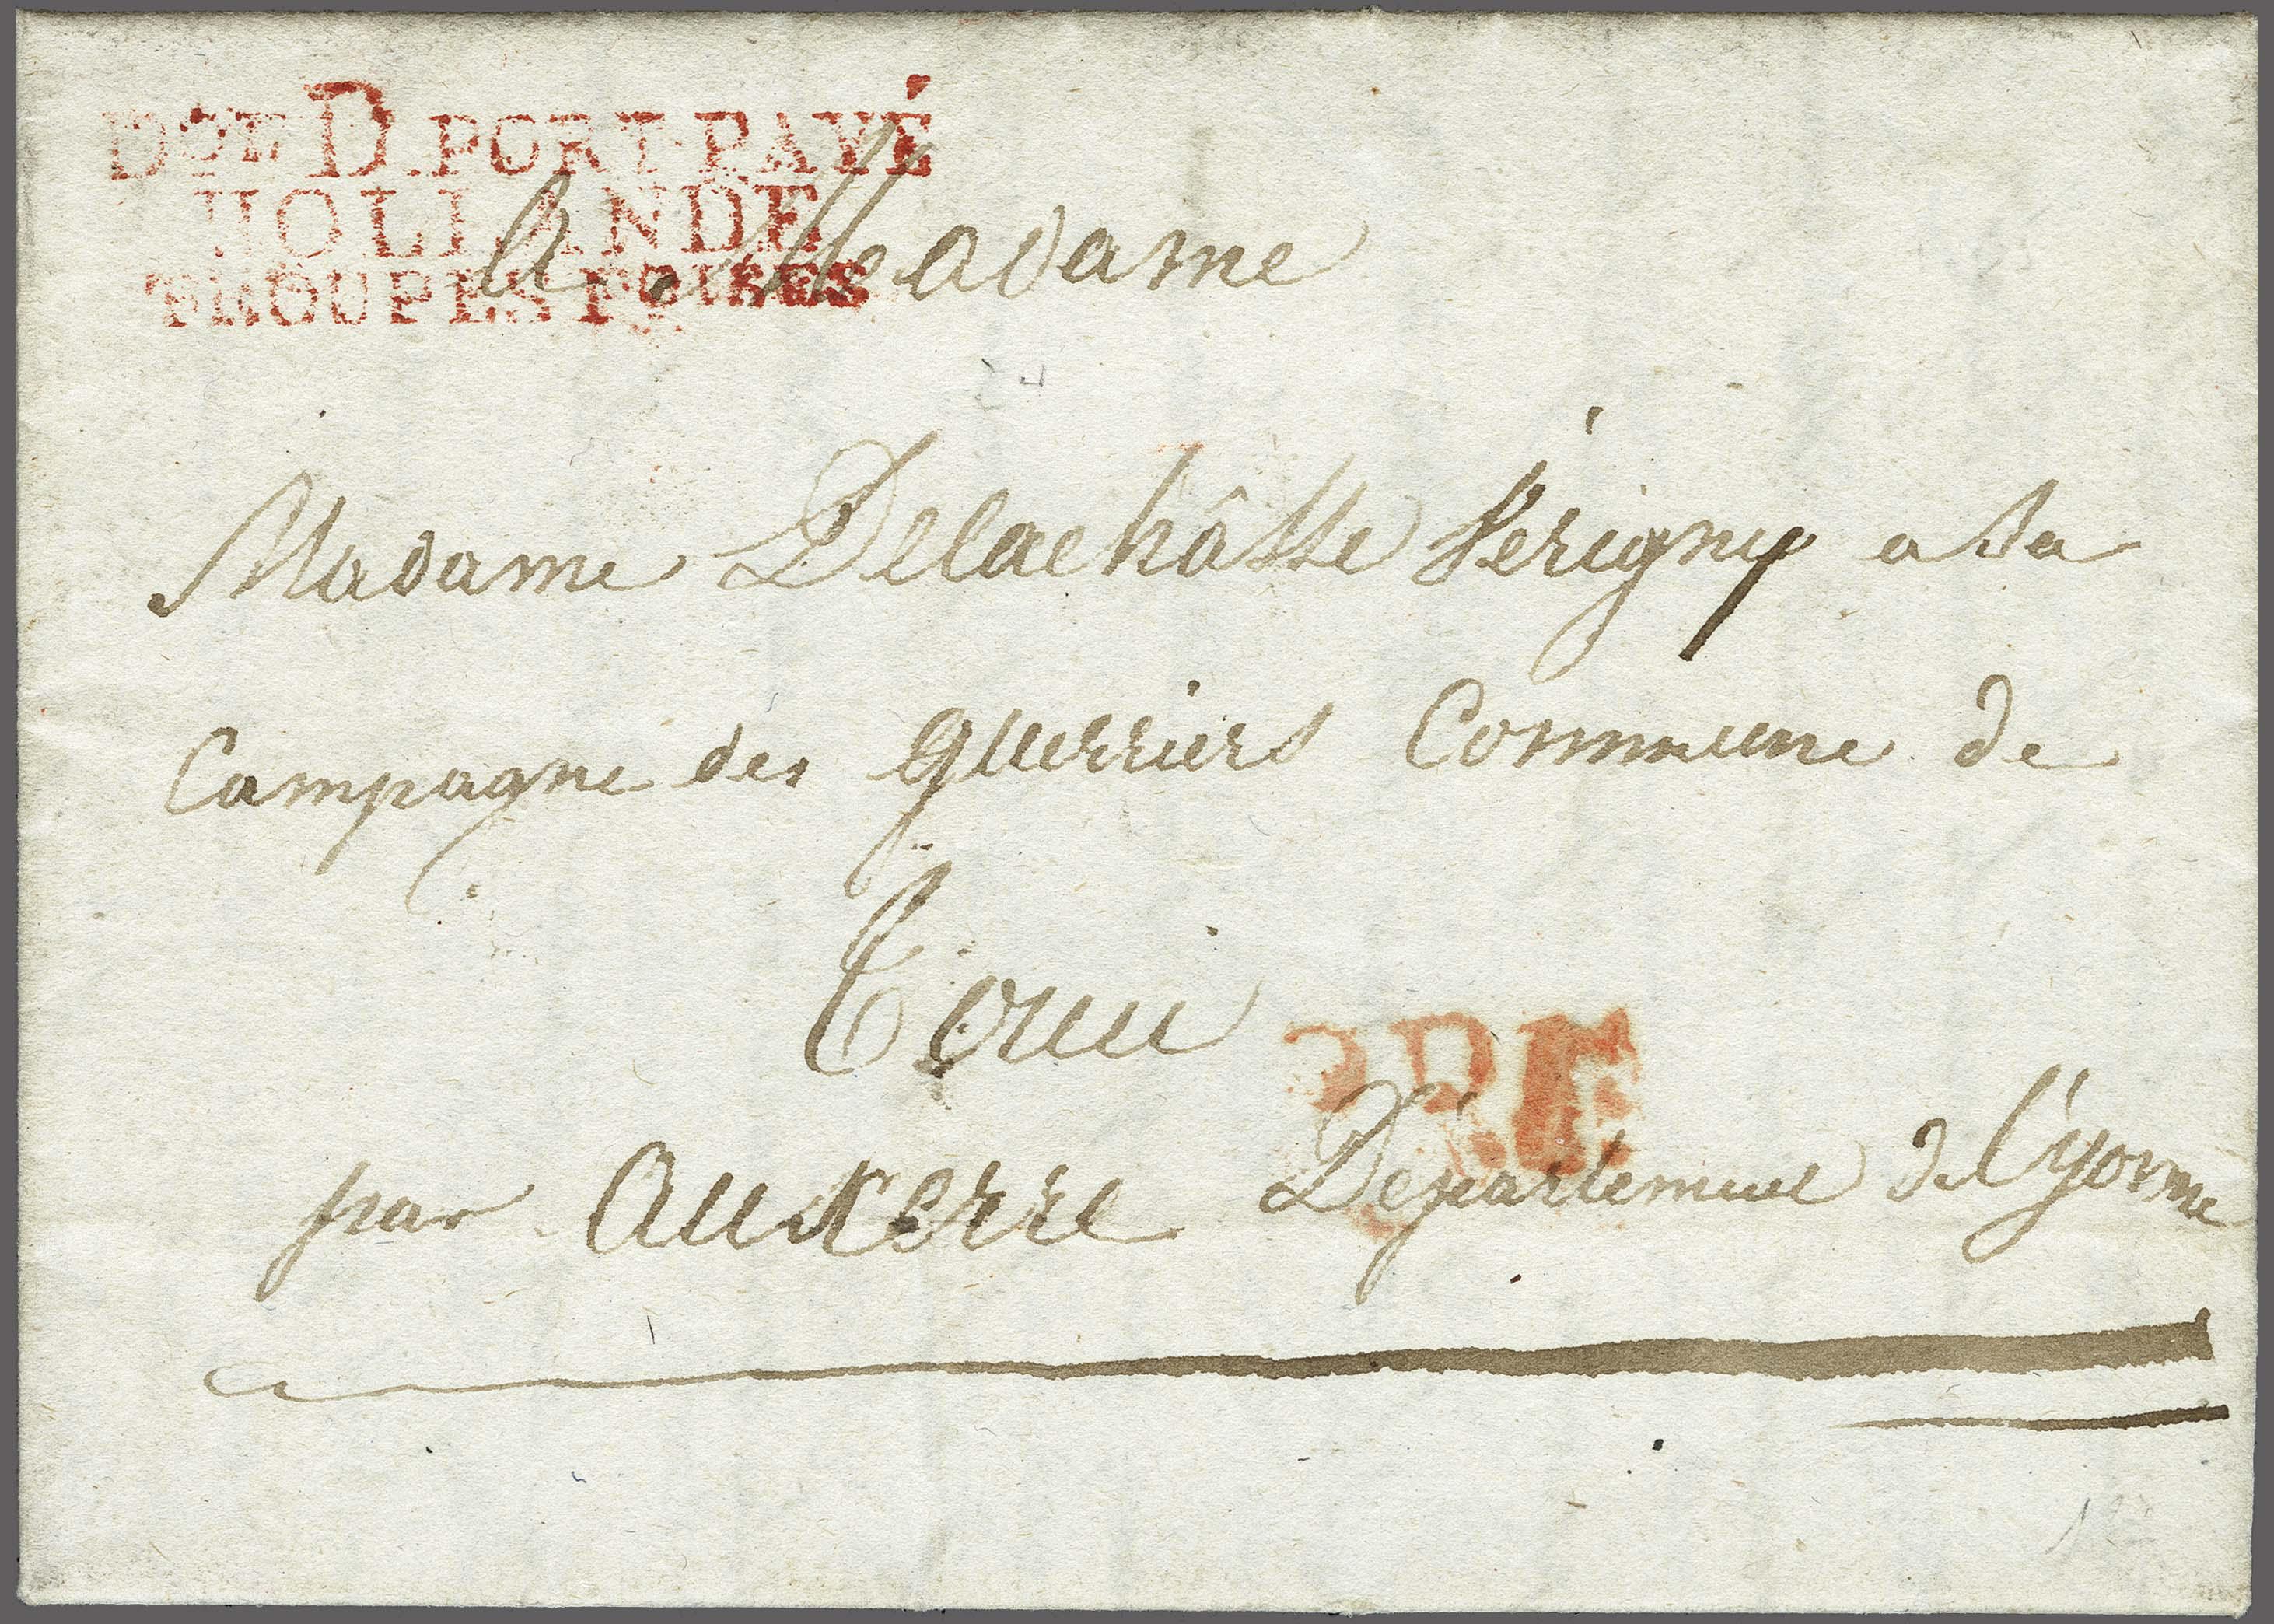 Don D. PORT-PAYÉ
HOLLANDE
TROUPES FSES
A Madame
Madame Delachâsse Vérigny a Sa
Campagne des guerriers Commune de
par Auxerre Département de L'yonne